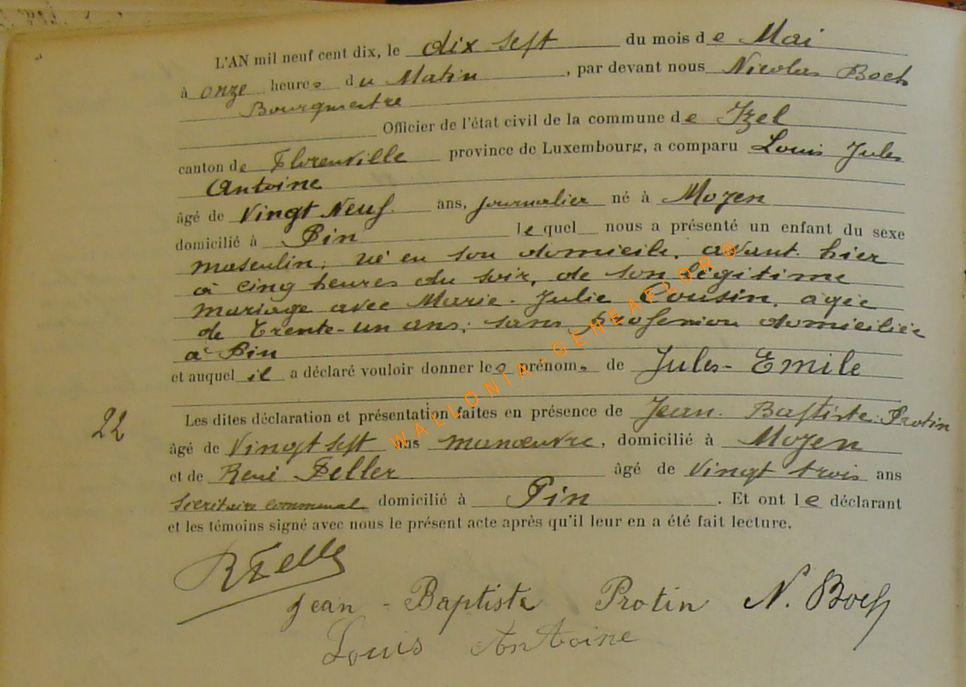 L'AN mil neuf cent dix, le dix sept du mois de Mai
à onze heures du Matin, par devant nous Nicolas Boch
Bourgmestre
Officier de l'état civil de la commune de Izel
canton de Florenville province de Luxembourg, a comparu Louis Jules
Antoine
âgé de Vingt Neuf ans, journalier né à Moyen
domicilié à Pin lequel nous a présenté un enfant du sexe
masculin, né en son domicile, avant hier
à cinq heures du soir, de son légitime
mariage avec Marie-Julie Cousin, agée
de trente-un ans, sans profession domiciliée
à Pin
et auquel il a déclaré vouloir donner les prénoms de Jules-Emile
22
Les dites déclaration et présentation faites en présence de Jean-Baptiste Protin
âgé de Vingt sept ans manœuvre, domicilié à Moyen
et de René Feller âgé de Vingt trois ans
secrétaire communal domicilié à Pin. Et ont le déclarant
et les témoins signé avec nous le présent acte après qu'il leur en a été fait lecture.
Jean-Baptiste Protin N. Boch
Louis Antoine
WALLONIA-GENEAFI.ORG